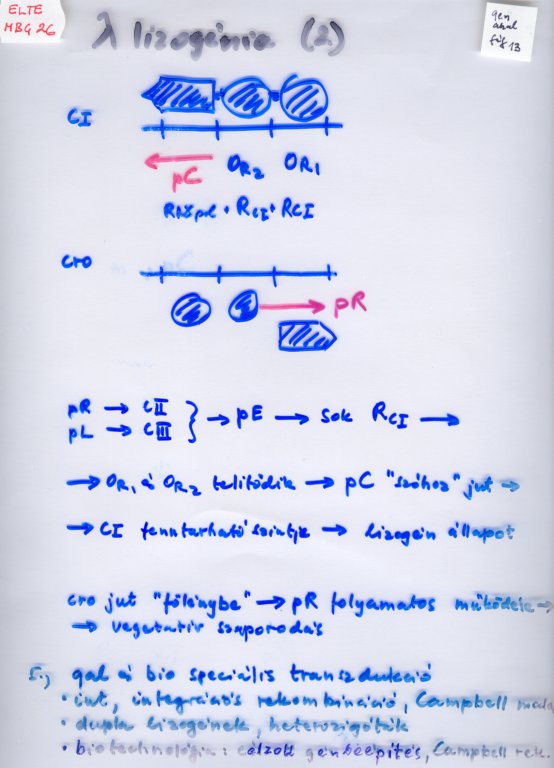 ELTE
MBG 26
gen
anal
fóg 13
λ lizogénia (2.)
CI
pC OR2 OR1
RNSpol + RCI + RCI
cro
pR
pR → CII
pL → CIII } → pE → sok RCI →
→ OR1 és OR2 telítődik → pC "szóhoz" jut →
→ CI fenntartható szintje → lizogén állapot
cro jut "fölénybe" → pR folyamatos működése →
→ vegetatív szaporodás
5., gal és bio speciális transzdukció
• int, integrációs rekombináció, Campbell
• dupla lizogének, heterozigóták
• biotechnológia: célzott génbeépítés, Campbell rek.